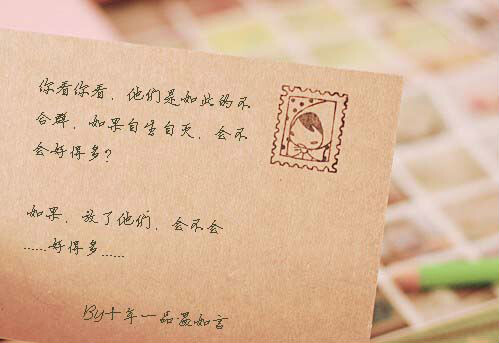 你看你看，他们是如此的不
合群，如果自生自灭，会不
会好得多？
如果，放了他们，会不会
……好得多……
By十年一品温如言